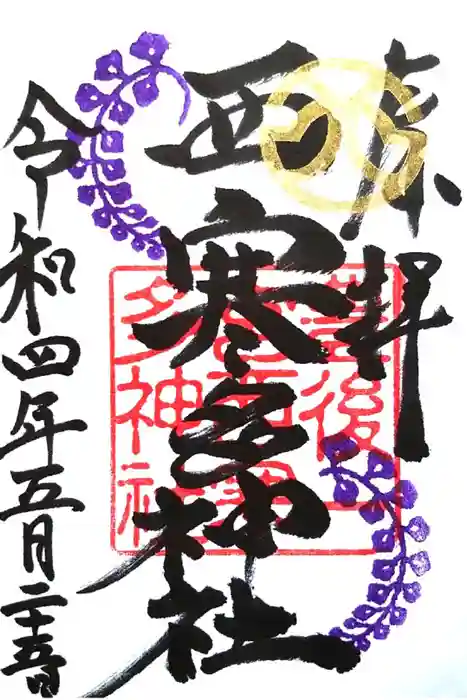 奉拝
西寒多神社
令和四年五月二十五日
豊後一
宮西寒
多神社